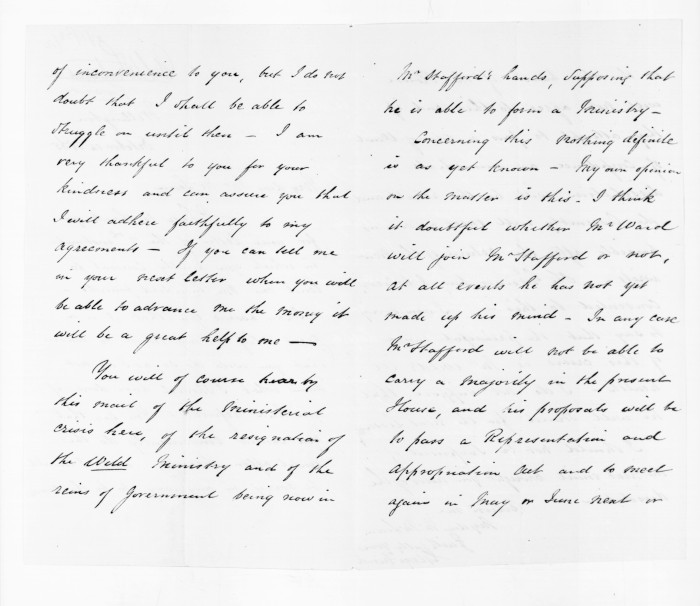 of inconvenience to you, but I do not
doubt that I shall be able to
struggle on until then – I am
very thankful to you for your
kindness and can assure you that
I will adhere faithfully to my
agreements – If you can tell me
in your next letter when you will
be able to advance me the money it
will be a great help to me –
You will of course hear by
this mail of the Ministerial
crisis here, of the resignation of
the Weld Ministry and of the
reins of Government being now in
Mr Stafford's hands, supposing that
he is able to form a Ministry –
Concerning this nothing definite
is as yet known – My own opinion
on the matter is this – I think
it doubtful whether Mr Ward
will join Mr Stafford or not,
at all events he has not yet
made up his mind – In any case
Mr Stafford will not be able to
carry a majority in the present
House, and his proposals will be
to pass a Representation and
Appropriation Act and to meet
again in May or June next or